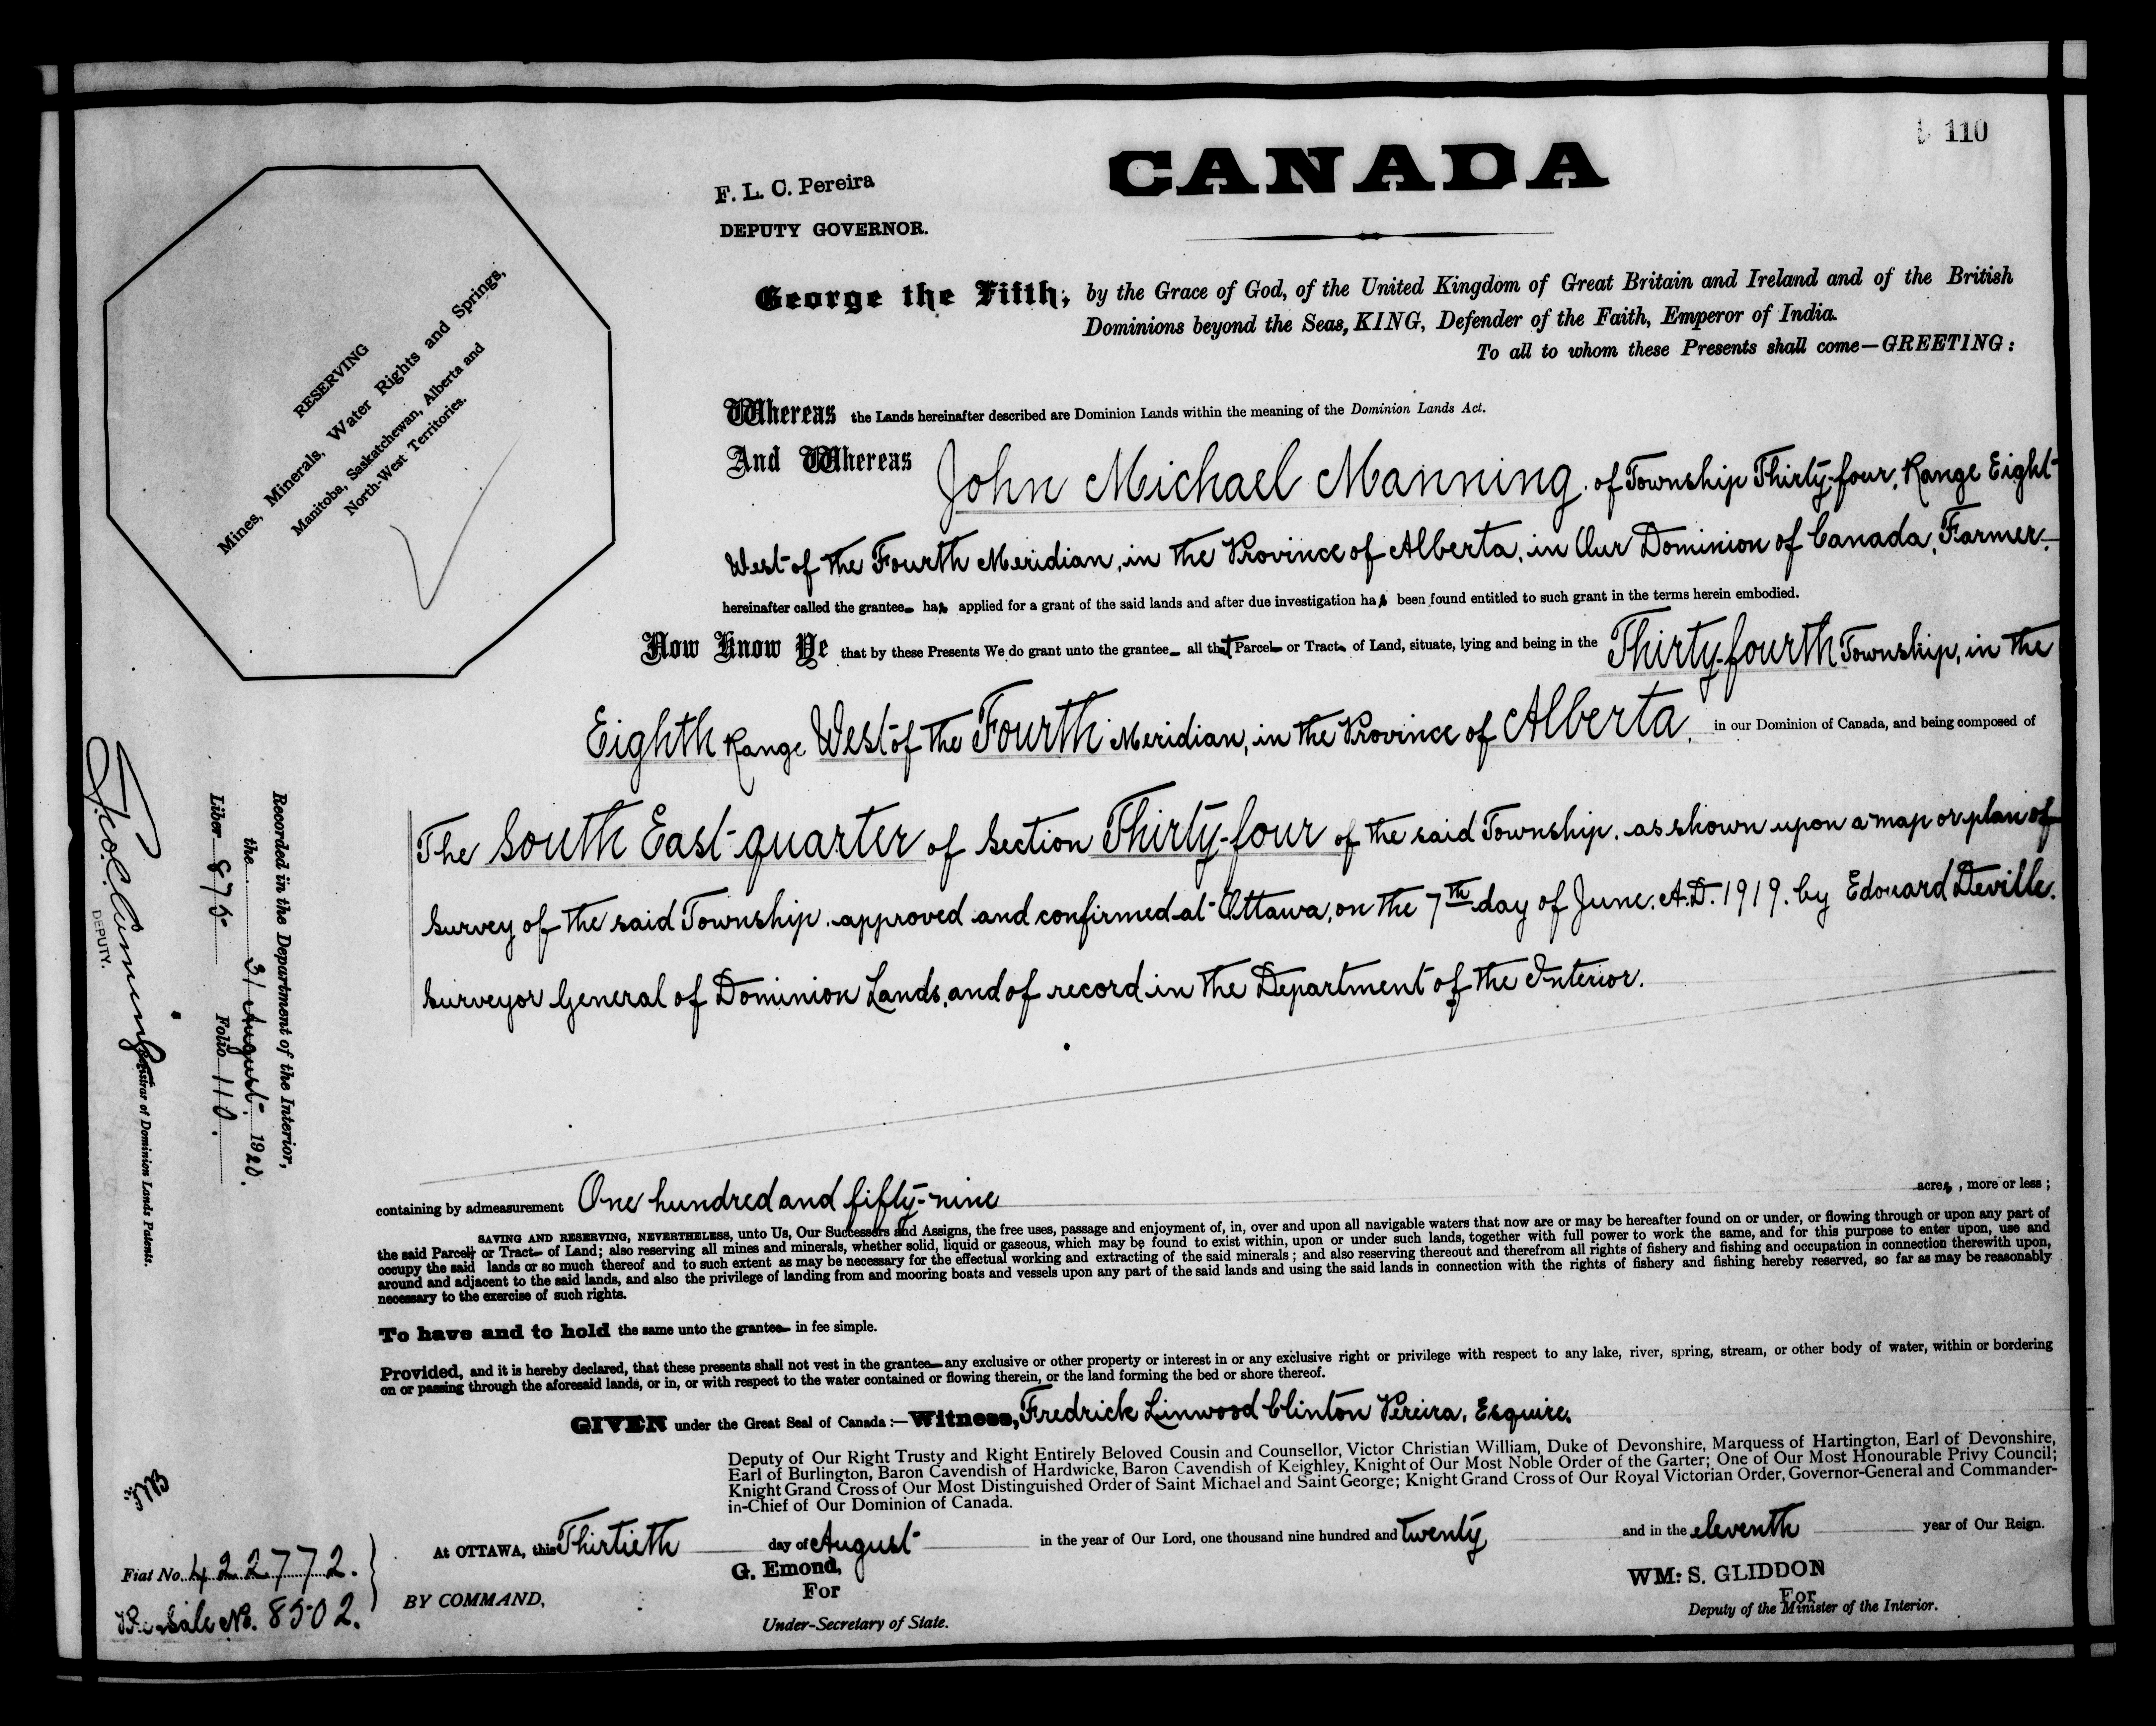 110
CANADA
F. L. C. Pereira
DEPUTY GOVERNOR.
George the Fifth, by the Grace of God, of the United Kingdom of Great Britain and Ireland and of the British
Dominions beyond the Seas, KING, Defender of the Faith, Emperor of India.
To all to whom these Presents shall come—GREETING:
RESERVING
Mines, Minerals, Water Rights and Springs,
Manitoba, Saskatchewan, Alberta and
North-West Territories.
Whereas the Lands hereinafter described are Dominion Lands within the meaning of the Dominion Lands Act.
And Whereas John Michael Manning, of Township Thirty-four, Range Eight
West of the Fourth Meridian, in the Province of Alberta, in Our Dominion of Canada, Farmer
hereinafter called the grantee has applied for a grant of the said lands and after due investigation has been found entitled to such grant in the terms herein embodied.
Now Know Ye that by these Presents We do grant unto the grantee all that Parcel or Tract of Land, situate, lying and being in the Thirty-fourth Township, in the
Eighth Range West of the Fourth Meridian, in the Province of Alberta, in our Dominion of Canada, and being composed of
The South East quarter of Section Thirty-four of the said Township, as shown upon a map or plan of
Survey of the said Township, approved and confirmed at Ottawa, on the 7th day of June, A.D. 1919, by Edouard Deville,
Surveyor General of Dominion Lands, and of record in the Department of the Interior.
Recorded in the Department of the Interior,
the 31 August 1920.
Liber 875 Folio 110.
DEPUTY. Registrar of Dominion Lands Patents.
containing by admeasurement One hundred and fifty-nine acres, more or less;
SAVING AND RESERVING, NEVERTHELESS, unto Us, Our Successors and Assigns, the free uses, passage and enjoyment of, in, over and upon all navigable waters that now are or may be hereafter found on or under, or flowing through or upon any part of
the said Parcel or Tract of Land; also reserving all mines and minerals, whether solid, liquid or gaseous, which may be found to exist within, upon or under such lands, together with full power to work the same, and for this purpose to enter upon, use and
occupy the said lands or so much thereof and to such extent as may be necessary for the effectual working and extracting of the said minerals; and also reserving thereout and therefrom all rights of fishery and fishing and occupation in connection therewith upon,
around and adjacent to the said lands, and also the privilege of landing from and mooring boats and vessels upon any part of the said lands and using the said lands in connection with the rights of fishery and fishing hereby reserved, so far as may be reasonably
necessary to the exercise of such rights.
To have and to hold the same unto the grantee in fee simple.
Provided, and it is hereby declared, that these presents shall not vest in the grantee any exclusive or other property or interest in or any exclusive right or privilege with respect to any lake, river, spring, stream, or other body of water, within or bordering
on or passing through the aforesaid lands, or in, or with respect to the water contained or flowing therein, or the land forming the bed or shore thereof.
GIVEN under the Great Seal of Canada:—Witness, Fredrick Linwood Clinton Pereira, Esquire,
Deputy of Our Right Trusty and Right Entirely Beloved Cousin and Counsellor, Victor Christian William, Duke of Devonshire, Marquess of Hartington, Earl of Devonshire,
Earl of Burlington, Baron Cavendish of Hardwicke, Baron Cavendish of Keighley, Knight of Our Most Noble Order of the Garter; One of Our Most Honourable Privy Council;
Knight Grand Cross of Our Most Distinguished Order of Saint Michael and Saint George; Knight Grand Cross of Our Royal Victorian Order, Governor-General and Commander-
in-Chief of Our Dominion of Canada.
At OTTAWA, this Thirtieth day of August in the year of Our Lord, one thousand nine hundred and twenty and in the eleventh year of Our Reign.
Fiat No. 422772.
Re-Sale No. 8502.
BY COMMAND,
G. Emond,
For
Under-Secretary of State.
WM: S. GLIDDON
For
Deputy of the Minister of the Interior.